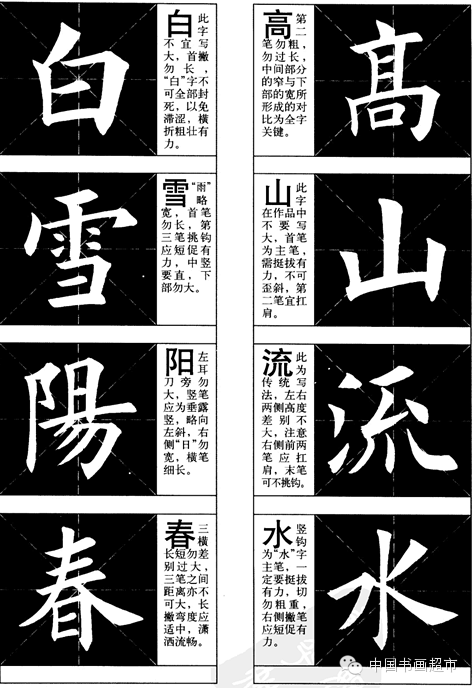 高
高 第二
笔勿粗,
勿过长,
中间部分
的窄与下
部的宽所
形成的对
比为全字
关键。
山
山 此字
在作品中
不要写
大,首笔
为主笔,
需挺拔有
力,不可
歪斜,第
二笔宜扛
肩。
流
流 此为
传统写
法,左右
两侧高度
差别不
大,注意
右侧前两
笔应扛
肩,末笔
可不挑钩。
水
水 竖钩
为“水”字
主笔,一
定要挺拔
有力,切
勿粗重,
右侧撇笔
应短促有
力。
白
白 此字
不宜写
大,首撇
勿长,
“白”字不
可全部封
死,以免
滞涩,横
折粗壮有
力。
雪
雪 “雨”略
宽,首笔
勿长,第
三笔挑钩
应短促有
力,中竖
要直,下
部勿大。
陽
阳 左耳
刀旁勿
大,竖笔
应为垂露
竖,略向
左斜,右
侧“日”勿
宽,横笔
细长。
春
春 三横
长短勿差
别过大,
三笔之间
距离亦不
可大,长
撇弯度应
适中,潇
洒流畅。
中国书画超市